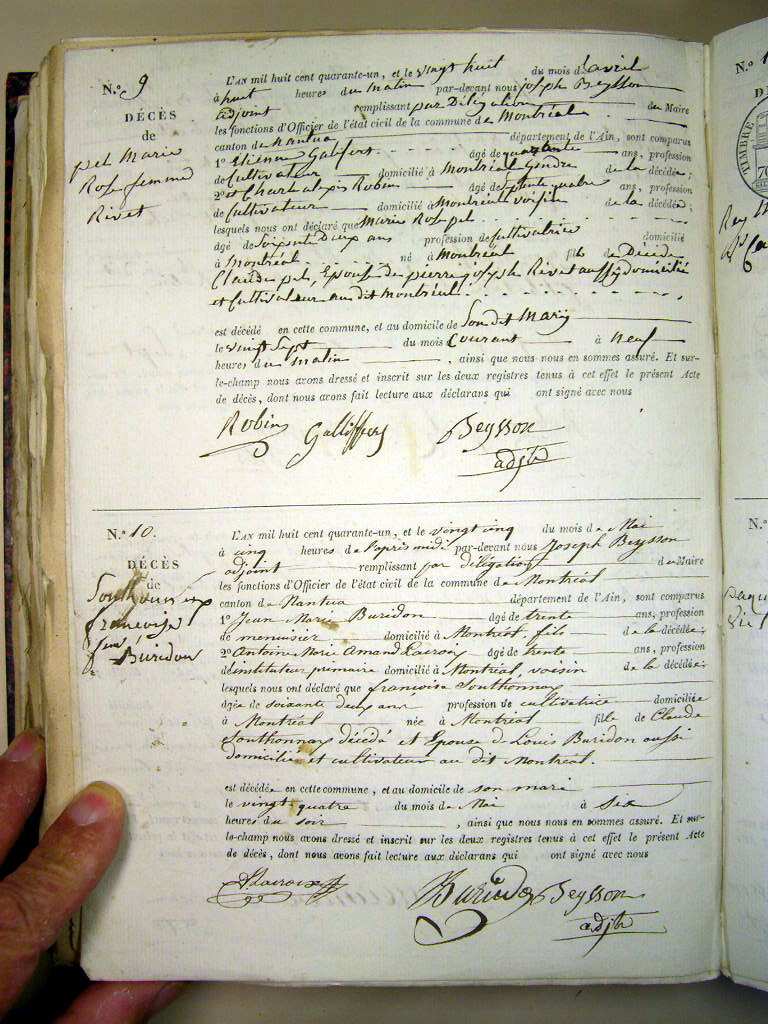 N.° 9
DÉCÈS
de
pel Marie
Rose femme
Rivet
L'AN mil huit cent quarante-un, et le vingt huit du mois d'avril
à huit heures du matin par-devant nous joseph Beysson
adjoint remplissant par Délégation du Maire
les fonctions d'Officier de l'état civil de la commune de Montréal
canton de Nantua département de l'Ain, sont comparus
1° Etienne âgé de quarente ans, profession
de Cultivateur domicilié à Montréal Gendre de la décédée;
2° et Robin âgé de Septente quatre ans, profession
de Cultivateur domicilié à Montréal voisin de la décédée;
lesquels nous ont déclaré que Marie Rose pel
âgé de Soixente Deux ans profession de Cultivatrice domicilié
à Montréal né à Montréal fils de Décédé
Claude pel, Epouse de pierre joseph Rivet aussy domicilié
et Cultivateur au dit Montréal
est décédé en cette commune, et au domicile de Son dit Mary
le vingt Sept du mois Courant à neuf
heures du matin , ainsi que nous nous en sommes assuré. Et sur-
le-champ nous avons dressé et inscrit sur les deux registres tenus à cet effet le présent Acte
de décès, dont nous avons fait lecture aux déclarans qui ont signé avec nous
Robin Galliffers Beysson
adjt
N.° 10.
DÉCÈS
de
Southonnax
françoise
fme
Buridon
L'AN mil huit cent quarante-un, et le vingt cinq du mois de Mai
à cinq heures de l'après midi par-devant nous Joseph Beysson
adjoint remplissant par délégation du Maire
les fonctions d'Officier de l'état civil de la commune de Montréal
canton de Nantua département de l'Ain, sont comparus
1° Jean Marie Buridon âgé de trente ans, profession
de menuisier domicilié à Montréal, fils de la décédée;
2° Antoine Marie Amand Lacroix âgé de trente ans, profession
d'instituteur primaire domicilié à Montréal, voisin de la décédée;
lesquels nous ont déclaré que françoise Southonnax
âgée de soixante deux ans profession de cultivatrice domiciliée
à Montréal née à Montréal fille de Claude
Southonnax décédé et Epouse de Louis Buridon aussi
domicilié et cultivateur au dit Montréal.
est décédée en cette commune, et au domicile de son mari
le vingt quatre du mois de Mai à Six
heures du soir , ainsi que nous nous en sommes assuré. Et sur-
le-champ nous avons dressé et inscrit sur les deux registres tenus à cet effet le présent Acte
de décès, dont nous avons fait lecture aux déclarans qui ont signé avec nous
Lacroix Buridon Beysson
adjt
N.°
TIMBRE
N.°